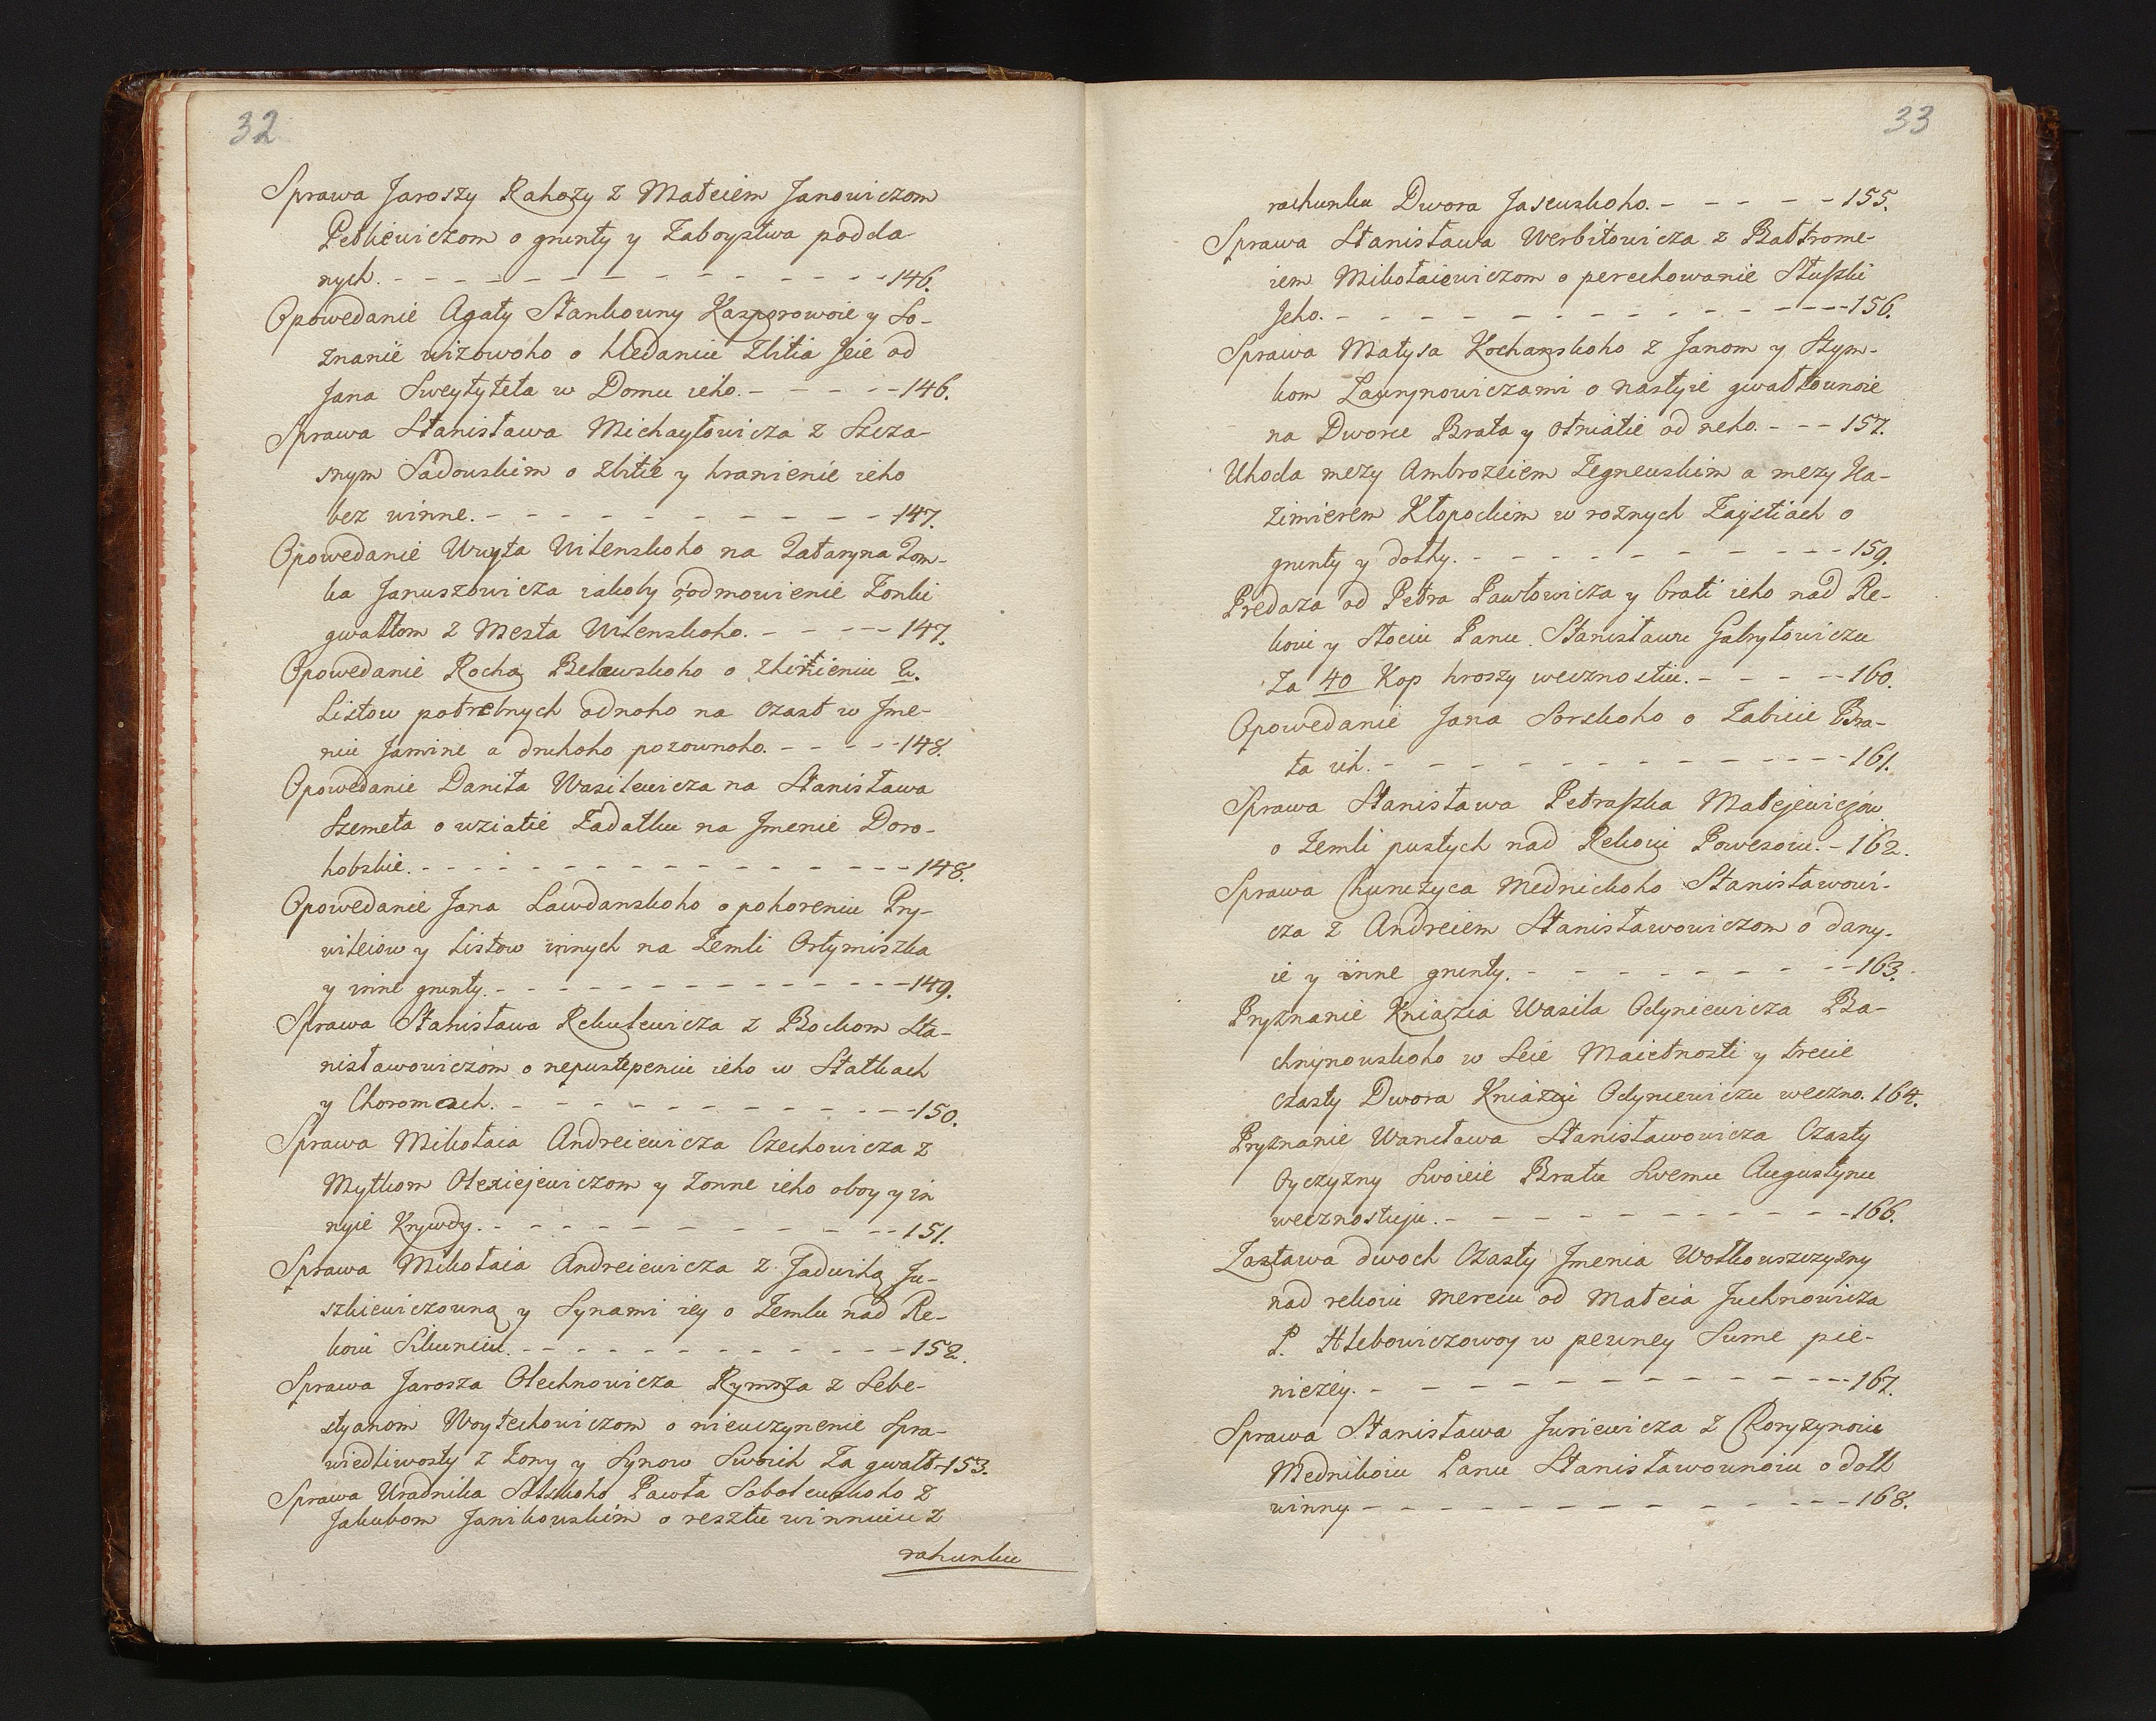 32
Sprawa Jaroszy Rahozy z Mateiem Janowiczom
Petkiewiczom o grunty y Zaboystwa podda-
nych. - - - - - - - - - - - - - 146.
Opowedanie Agaty Stankowny Kasporowoie y So-
znanie wizowoho o hledaniie Zbitia Jeie od
Jana Sweytyteta w Domu ieho. - - - - - 146.
Sprawa Stanisława Michayłowicza z Szcza-
snym Sadouskim o Zbitie y hranienie ieho
bez winne. - - - - - - - - - - 147.
Opowedanie Wuyta Wilenskoho na Tataryna Tom-
ka Januszowicza iakoby o odmowienie Zonki
gwałtom z Mesta Wilenskoho. - - - - - 147.
Opowedanie Rocha Belewskoho o Zhinieniu 2.
Listow potrebnych odnoho na Czast w Jme-
niu Jamine a druhoho pozownoho. - - - - - 148.
Opowedanie Daniła Wasilewicza na Stanisława
Szemeta o wziatie Zadatku na Jmenie Doro-
hobskie. - - - - - - - - - - - - - 148.
Opowedanie Jana Lawdanskoho o pohoreniu Pry-
wileiow y Listow innych na Zemli Ortymiszka
y inne grunty. - - - - - - - - - - - 149.
Sprawa Stanisława Rekutewicza z Bockom Sta-
nisławowiczom o nepustepeniu ieho w Statkach
y Choromach. - - - - - - - - - - 150.
Sprawa Mikołaia Andreiewicza Czechowicza z
Mytkom Olexiejewiczom y Zonne ieho oboy y in
nyie Krywdy. - - - - - - - - - - 151.
Sprawa Mikołaia Andreiewicza z Jadwiką Ju-
szkiewiczowną y Synami iey o Zemlu nad Re-
koiu Sikuniu. - - - - - - - - - - 152.
Sprawa Jarosza Olechnowicza Rymsza z Sebe-
styanom Woytechowiczom o nieuczynenie Spra-
wiedliwosty z Zony y Synow Swoich Za gwałt-153.
Sprawa Uradnika Sołskoho Pawła Sobolewskoho z
Jakubom Janikouskim o resztu winniuiu z
rahunku
33
rachunku Dwora Jaseuskoho. - - - - - 155.
Sprawa Stanisława Werbiłowicza z Bałtrome-
iem Mikołaiewiczom o perechowanie Słuszki
Jeho. - - - - - - - - - - - - 156.
Sprawa Matysa Kochanskoho z Janom y Szym-
kom Laurynowiczami o nastyie gwałtounoie
na Dworce Brata y otniatie od neho. - - - 157.
Uhoda mezy Ambrozeiem Zegneuskim a mezy Ka-
zimierem Kłopockim w roznych Zaystiach o
grunty y dołhy. - - - - - - - - - - 159.
Predaza od Petra Pawłowicza y brati ieho nad Re-
koiu y Stociu Panu Stanisławu Gabryłowiczu
Za 40 Kop hroszy wecznostiu. - - - - - 160.
Opowedanie Jana Sorskoho o Zabicie Bra-
ta ich. - - - - - - - - - - - - 161.
Sprawa Stanisława Petraszka Matejewiczow
o Zemli pustych nad Rekoiu Powezoiu. - 162.
Sprawa Chunczyca Mednickoho Stanisławowi-
cza z Andreiem Stanisławowiczom o dany-
ie y inne grunty. - - - - - - - - - 163.
Pryznanie Kniazia Wasila Odyniewicza Ba-
chnynouskoho w Seie Maietnosti y trecie
czasty Dwora Kniaziu Odyniewiczu weczno. 164.
Pryznanie Wancława Stanisławowicza Czasty
Oyczyzny Swoieie Bratu Swemu Augustynu
wecznostuju. - - - - - - - - - - 166.
Zastawa dwoch Czasty Jmenia Wołkouszczyzny
nad rekoiu Mereiu od Mateia Juchnowicza
P. Hlebowiczowoy w peuney Sume pie-
niezey. - - - - - - - - - - - - 167.
Sprawa Stanisława Juriewicza z Choryzynoiu
Mednikoiu Panu Stanisławounoiu o dołh
winny - - - - - - - - - - - - 168.